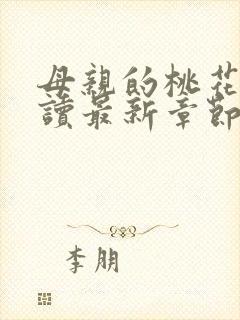 母親的桃花
讀最新章節
李朋